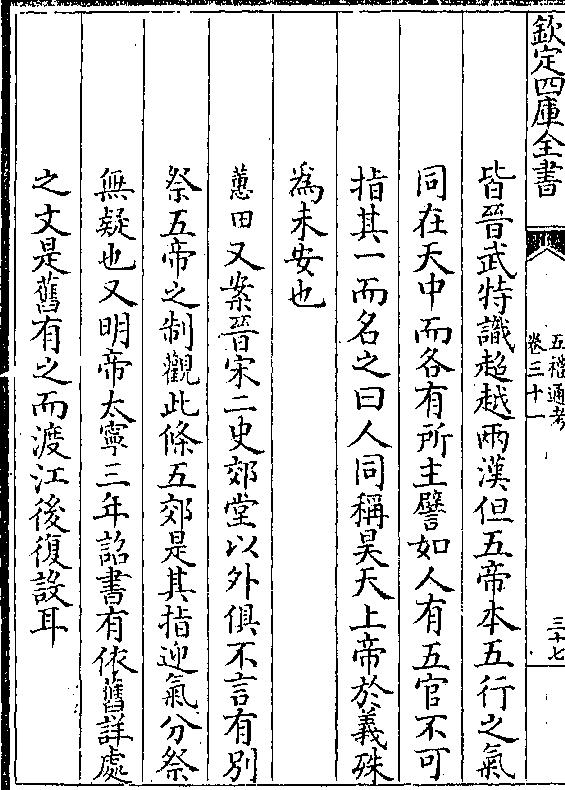 欽定四庫全書
五禮通考
卷三十一
三十七
皆晉武特識超越兩漢但五帝本五行之氣
同在天中而各有所主譬如人有五官不可
指其一而名之曰人同稱昊天上帝於義殊
為未安也
蕙田又案晉宋二史郊堂以外俱不言有別
祭五帝之制觀此條五郊是其指迎氣分祭
無疑也又明帝太寧三年詔書有依舊詳處
之文是舊有之而渡江後復設耳